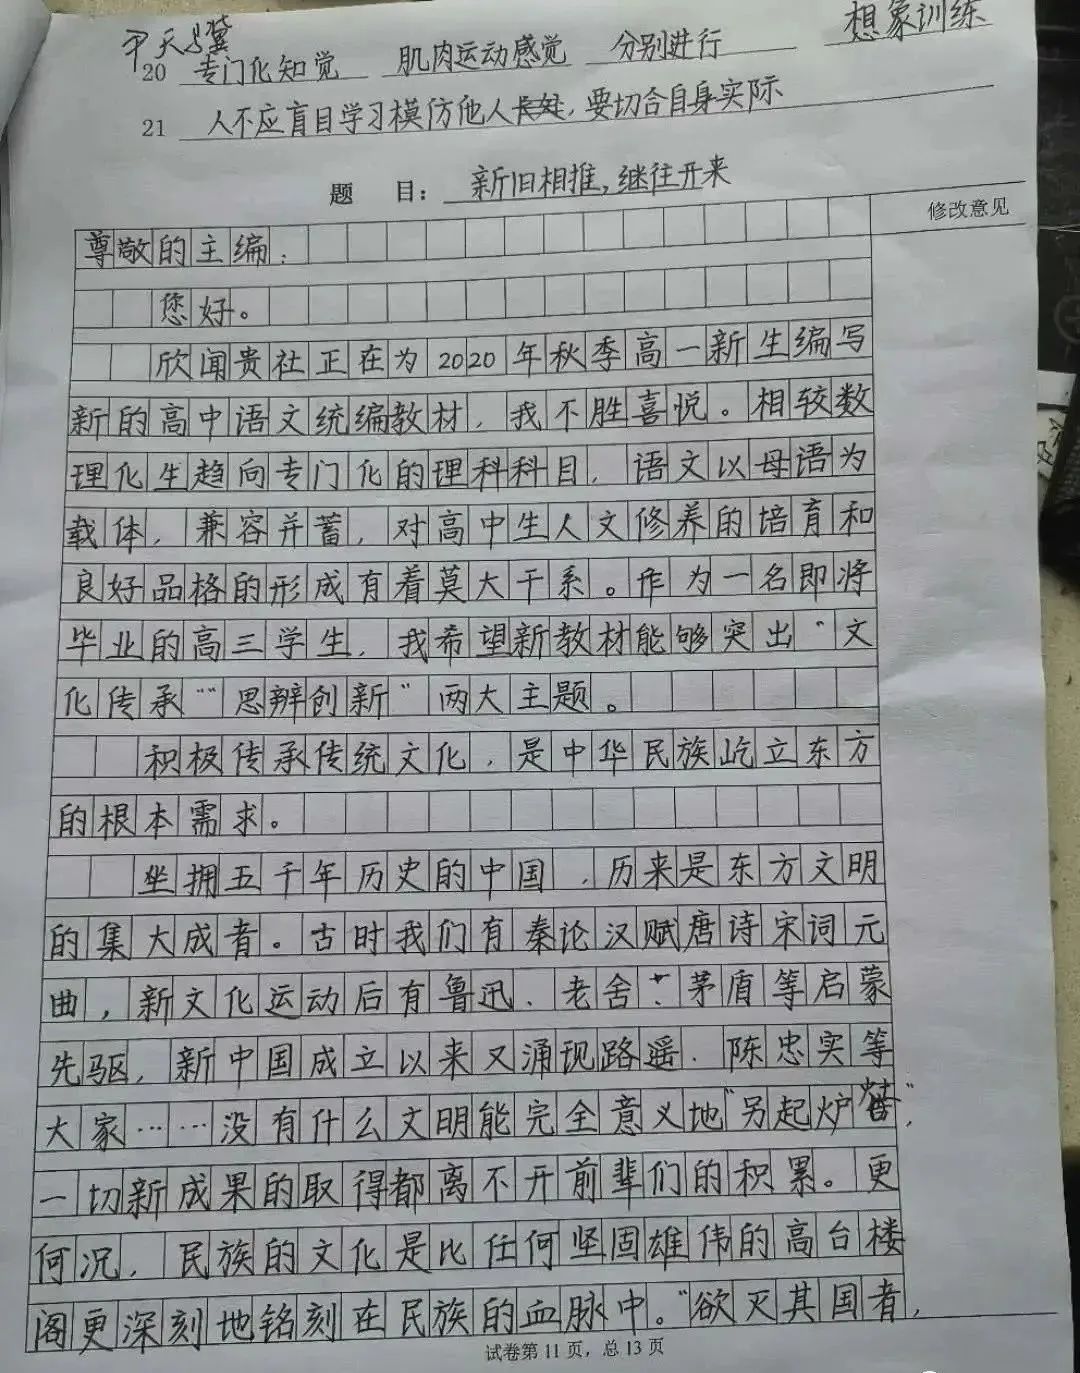 尹天骥
20 专门化知觉 肌肉运动感觉 分别进行 想象训练
21 人不应盲目学习模仿他人长处,要切合自身实际
题 目: 新旧相推,继往开来
修改意见
尊敬的主编:
您好。
欣闻贵社正在为2020年秋季高一新生编写
新的高中语文统编教材,我不胜喜悦。相较数
理化生趋向专门化的理科科目,语文以母语为
载体,兼容并蓄,对高中生人文修养的培育和
良好品格的形成有着莫大干系。作为一名即将
毕业的高三学生,我希望新教材能够突出“文
化传承”“思辨创新”两大主题。
积极传承传统文化,是中华民族屹立东方
的根本需求。
坐拥五千年历史的中国,历来是东方文明
的集大成者。古时我们有秦论汉赋唐诗宋词元
曲,新文化运动后有鲁迅、老舍、茅盾等启蒙
先驱,新中国成立以来又涌现路遥、陈忠实等
大家……没有什么文明能完全意义地“另起炉灶”,
一切新成果的取得都离不开前辈们的积累。更
何况,民族的文化是比任何坚固雄伟的高台楼
阁更深刻地铭刻在民族的血脉中。“欲灭其国者,
试卷第11页,总13页